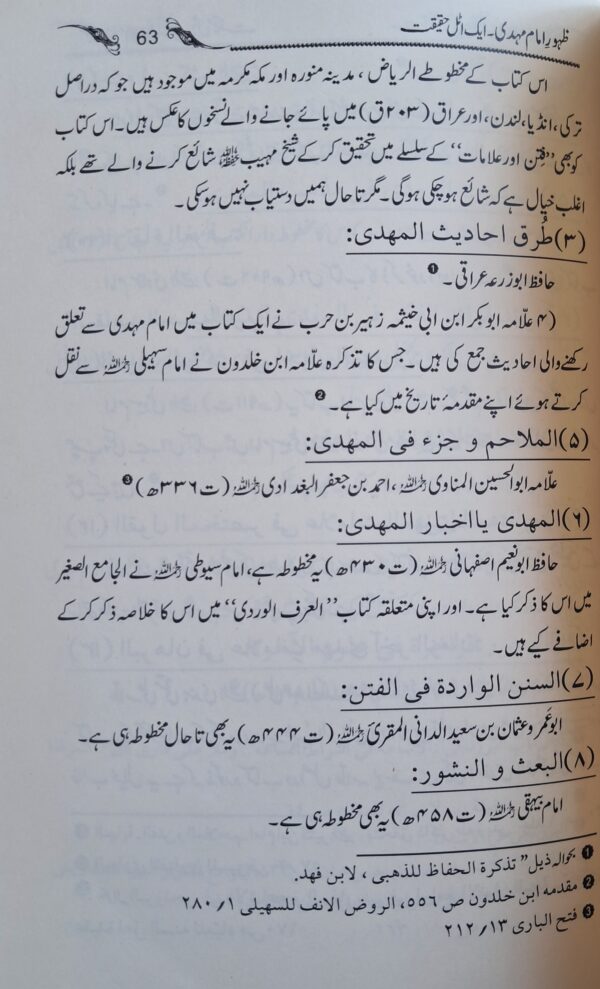 ظہورِ امام مہدی۔ ایک اٹل حقیقت 63
اس کتاب کے مخطوطے الریاض، مدینہ منورہ اور مکہ مکرمہ میں موجود ہیں جو کہ دراصل
ترکی، انڈیا، لندن، اور عراق (۲۰۳ق) میں پائے جانے والے نسخوں کا عکس ہیں۔ اس کتاب
کو بھی ”فِتن اور علامات“ کے سلسلے میں تحقیق کر کے شیخ مہیب ﷾ شائع کرنے والے تھے بلکہ
اغلب خیال ہے کہ شائع ہو چکی ہوگی۔ مگر تا حال ہمیں دستیاب نہیں ہو سکی۔
(۳) طُرق احادیث المھدی:
حافظ ابوزرعہ عراقی۔ ❶
(۴) علّامہ ابو بکر ابن ابی خیثمہ زہیر بن حرب نے ایک کتاب میں امام مہدی سے تعلق
رکھنے والی احادیث جمع کی ہیں۔ جس کا تذکرہ علّامہ ابن خلدون نے امام سہیلی رحمہ اللہ سے نقل
کرتے ہوئے اپنے مقدمۂ تاریخ میں کیا ہے۔ ❷
(۵) الملاحم و جزء فی المھدی:
علّامہ ابوالحسین المناوی رحمہ اللہ، احمد بن جعفر البغدادی رحمہ اللہ (ت ۳۳۶ھ) ❸
(۶) المھدی یا اخبار المھدی:
حافظ ابونعیم اصفہانی رحمہ اللہ (ت ۴۳۰ھ) یہ مخطوطہ ہے، امام سیوطی رحمہ اللہ نے الجامع الصغیر
میں اس کا ذکر کیا ہے۔ اور اپنی متعلقہ کتاب ”العرف الوردی“ میں اس کا خلاصہ ذکر کر کے
اضافے کیے ہیں۔
(۷) السنن الواردة فی الفتن:
ابوعَمر وعثمان بن سعید الدانی المقریٔ رحمہ اللہ (ت ۴۴۴ھ) یہ بھی تا حال مخطوطہ ہی ہے۔
(۸) البعث و النشور:
امام بیہقی رحمہ اللہ (ت ۴۵۸ھ) یہ بھی مخطوطہ ہی ہے۔
❶ بحوالہ ذیل ”تذکرة الحفاظ للذھبی، لابن فھد.
❷ مقدمه ابن خلدون ص ۵۵۶، الروض الانف للسھیلی ۱/ ۲۸۰
❸ فتح الباری ۱۳/ ۲۱۲